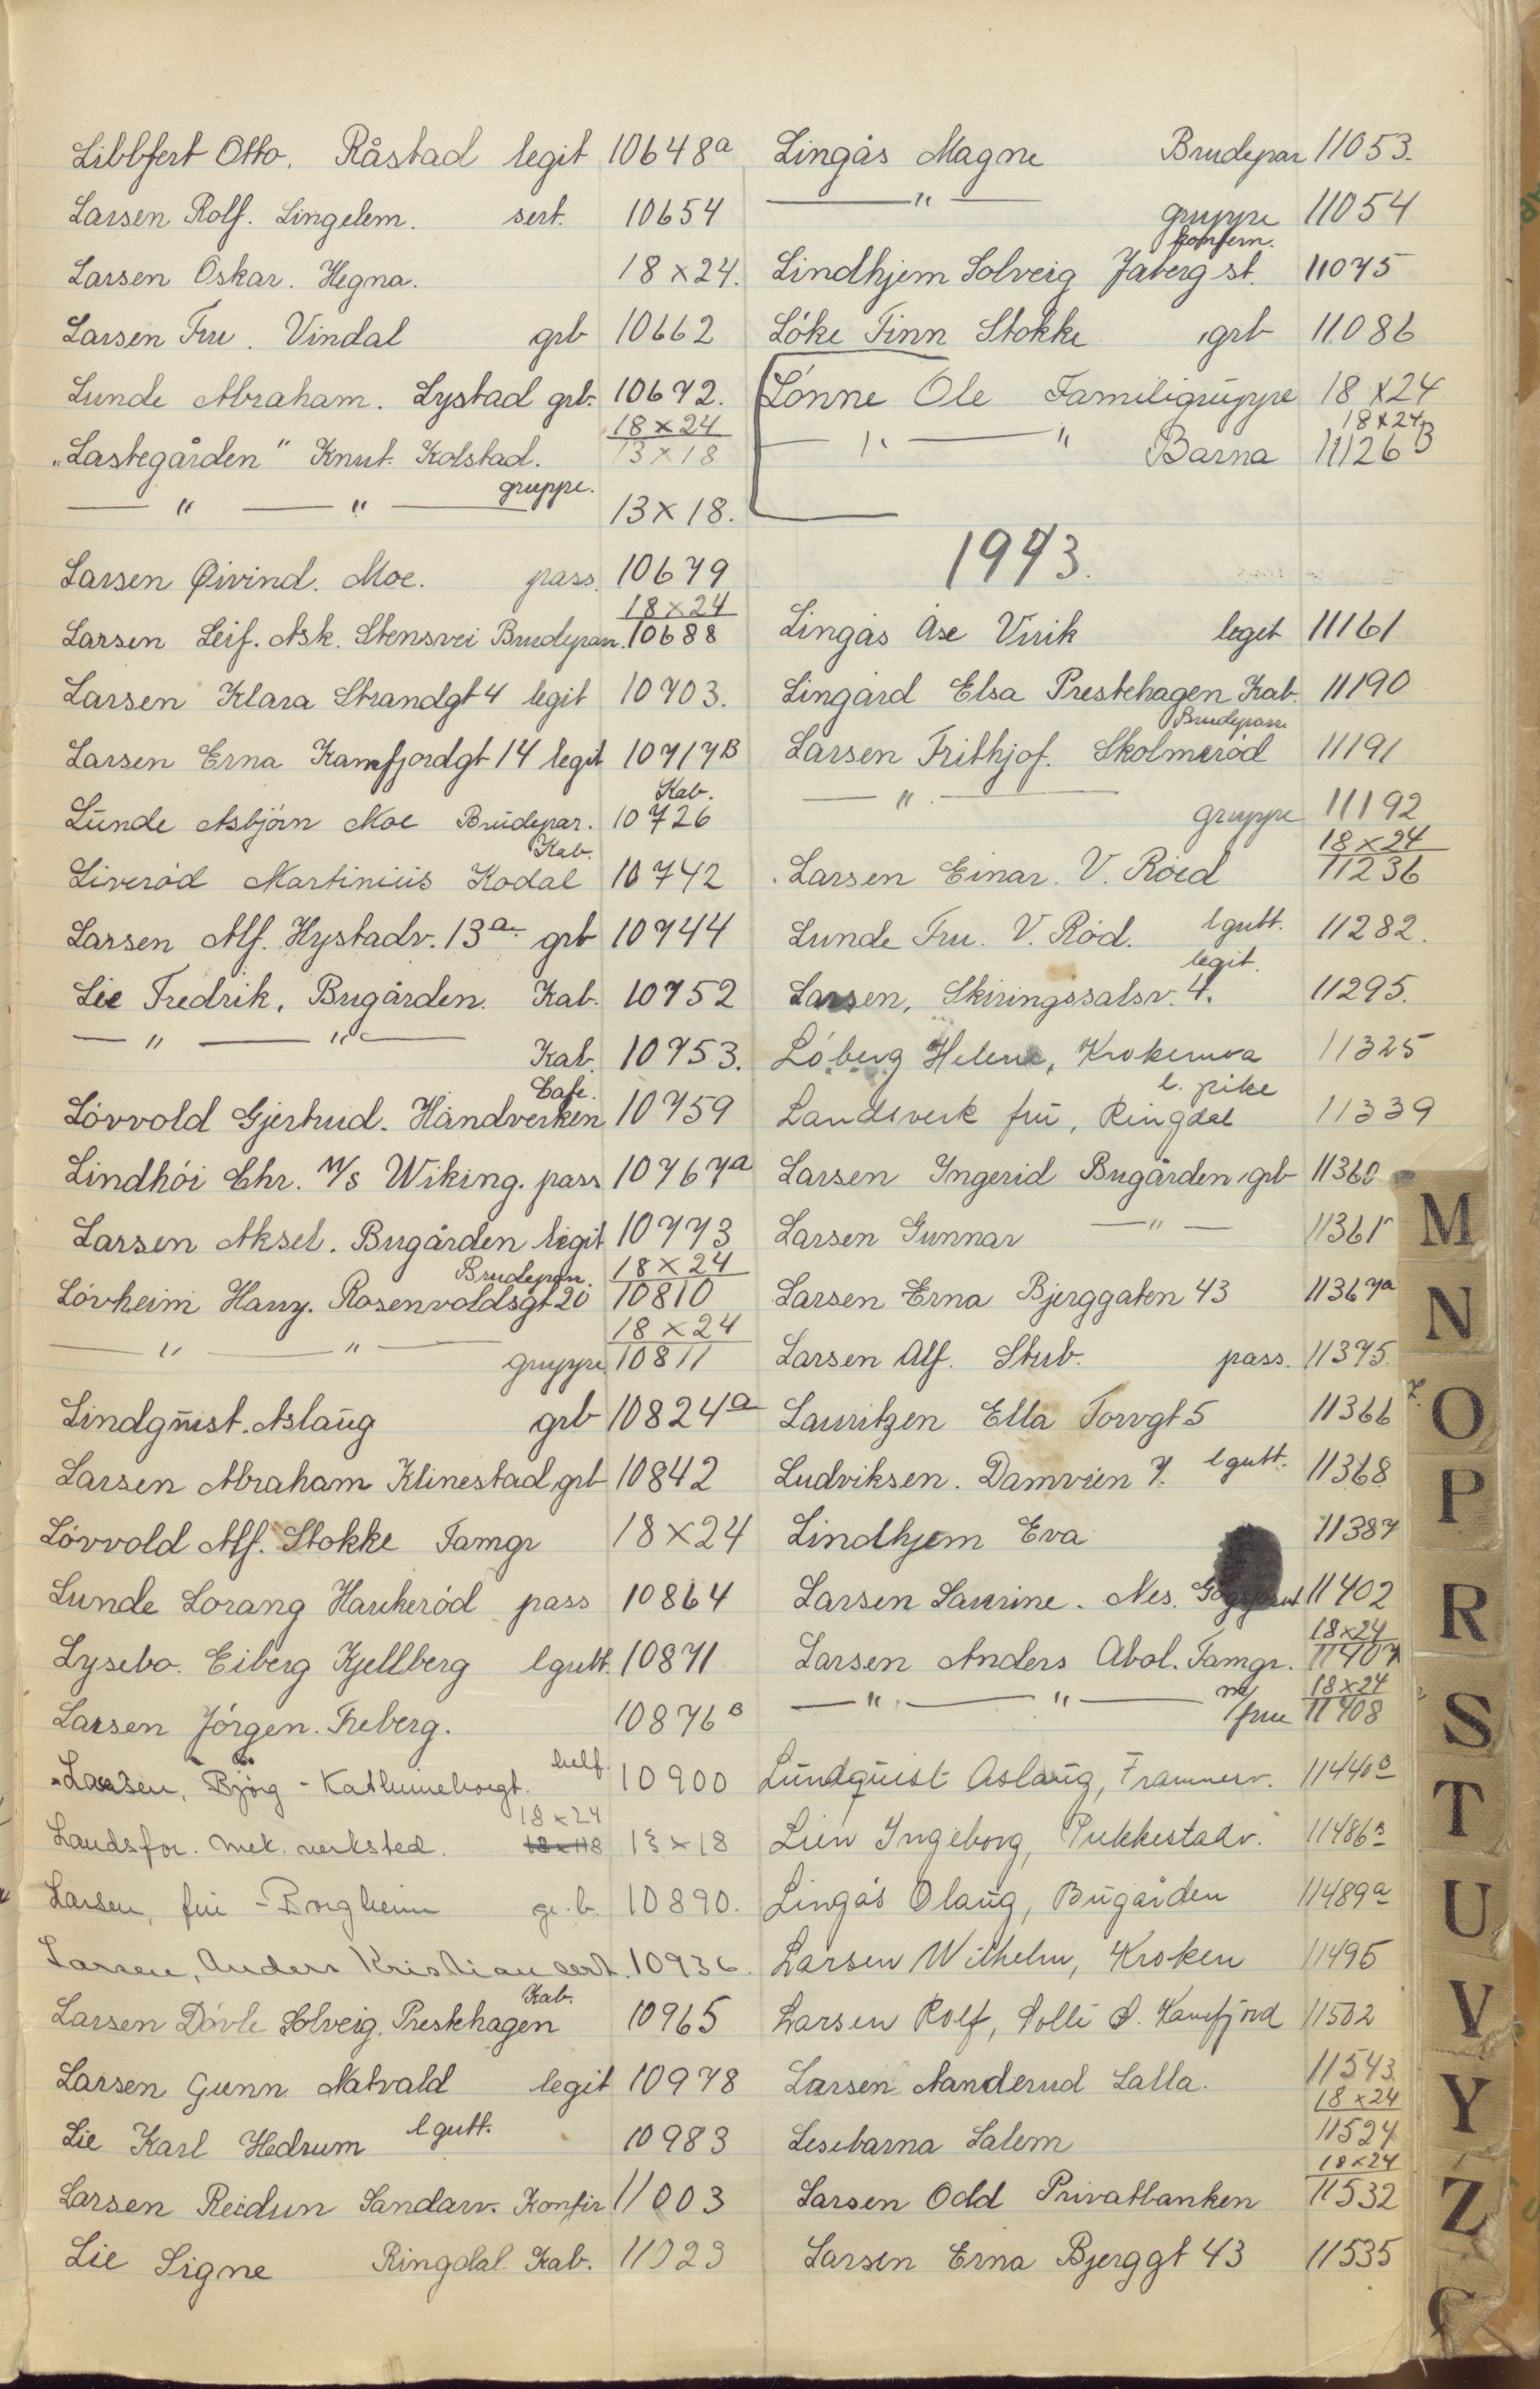 Libbfert Otto, Råstad legit 10648a
Larsen Rolf. Lingelem. sert. 10654
Larsen Oskar. Hegna. 18x24.
Larsen Fru. Vindal grb 10662
Lunde Abraham. Lystad grb. 10672.
18x24
„Lastegården" Knut. Kolstad. 13x18
— " — " — gruppe. 13x18.
Larsen Øivind. Moe. pass. 10679
18x24
Larsen Leif. Ask. Stensvei Brudepar. 10688
Larsen Klara Strandgt 4 legit 10703.
Larsen Erna Kamfjordgt 14 legit 10717B
Kab.
Lunde Asbjörn Moe Brudepar. 10726
Kab.
Liveröd Martinius Kodal 10742
Larsen Alf. Hystadv. 13a. grb 10744
Lie Fredrik, Bugården. Kab. 10752
— " — " — Kab. 10753.
Cafe.
Lövvold Gjertrud. Håndverken 10759
Lindhöi Chr. M/s Wiking. pass 10767a
Larsen Aksel. Bugården legit 10773
Brudepar. 18x24
Lövheim Harry. Rosenvoldsgt 20 10810
18x24
— " — " — gruppe 10811
Lindquist. Aslaug grb 10824a
Larsen Abraham Klinestad grb 10842
Lövvold Alf. Stokke Famgr 18x24
Lunde Lorang Haukeröd pass 10864
Lysebo. Eiberg Kjellberg l gutt. 10871
Larsen Jörgen. Freberg. 10876B
helf.
Larsen, Bjørg - Kathrineborgt. 10900
18x24
Landsfor. mek. verksted. 13x18
Larsen, fru - Borgheim gr. b. 10890.
Larsen, Anders Kristian sert. 10936.
Kab.
Larsen Dövle Solveig. Prestehagen 10965
Larsen Gunn Natvald legit 10978
Lie Karl Hedrum l gutt. 10983
Larsen Reidun Sandarv. Konfir 11003
Lie Signe Ringdal Kab. 11023
Lingås Magne Brudepar 11053.
— " — gruppe 11054
konfern.
Lindhjem Solveig Jåberg st. 11075
Löke Finn Stokke grb 11086
Lönne Ole Familigruppe 18x24
18x24
— " — " Barna 11126B
1943.
Lingås Åse Virik leget 11161
Lingård Elsa Prestehagen Kab. 11190
Brudeparr
Larsen Frithjof. Skolmeröd 11191
— " — gruppe 11192
18x24
Larsen Einar. V. Röed 11236
Lunde Fru. V. Röd. l gutt. 11282.
legit.
Larsen, Skiringssalsv. 4. 11295.
Löberg Helene, Krokemva 11325
l. pike
Landsverk fru, Ringdal 11339
Larsen Ingerid Bugården grb 11360
Larsen Gunnar — " — 11361
Larsen Erna Bjerggaten 43 11367a
Larsen Alf. Stub. pass. 11375.
Lauritzen Ella Torvgt 5 11366
Ludviksen. Damvien 7. l gutt. 11368
Lindhjem Eva 11387
Larsen Laurine. Nes. 11402
18x24
Larsen Anders Abol. Famgr. 11407
m/ 18x24
— " — " — frue 11408
Lundquist Aslaug, Framnesv. 11440B
Lien Ingeborg, Pukkestadv. 11486B
Lingås Olaug, Bugården 11489a
Larsen Wilhelm, Kroken 11495
Larsen Rolf, Solli S. Kamfjord 11502
Larsen Nanderud Lalla. 11543.
18x24
Lesebarna Salem 11524
18x24
Larsen Odd Privatbanken 11532
Larsen Erna Bjerggt 43 11535
M
N
O
P
R
S
T
U
V
Y
Z